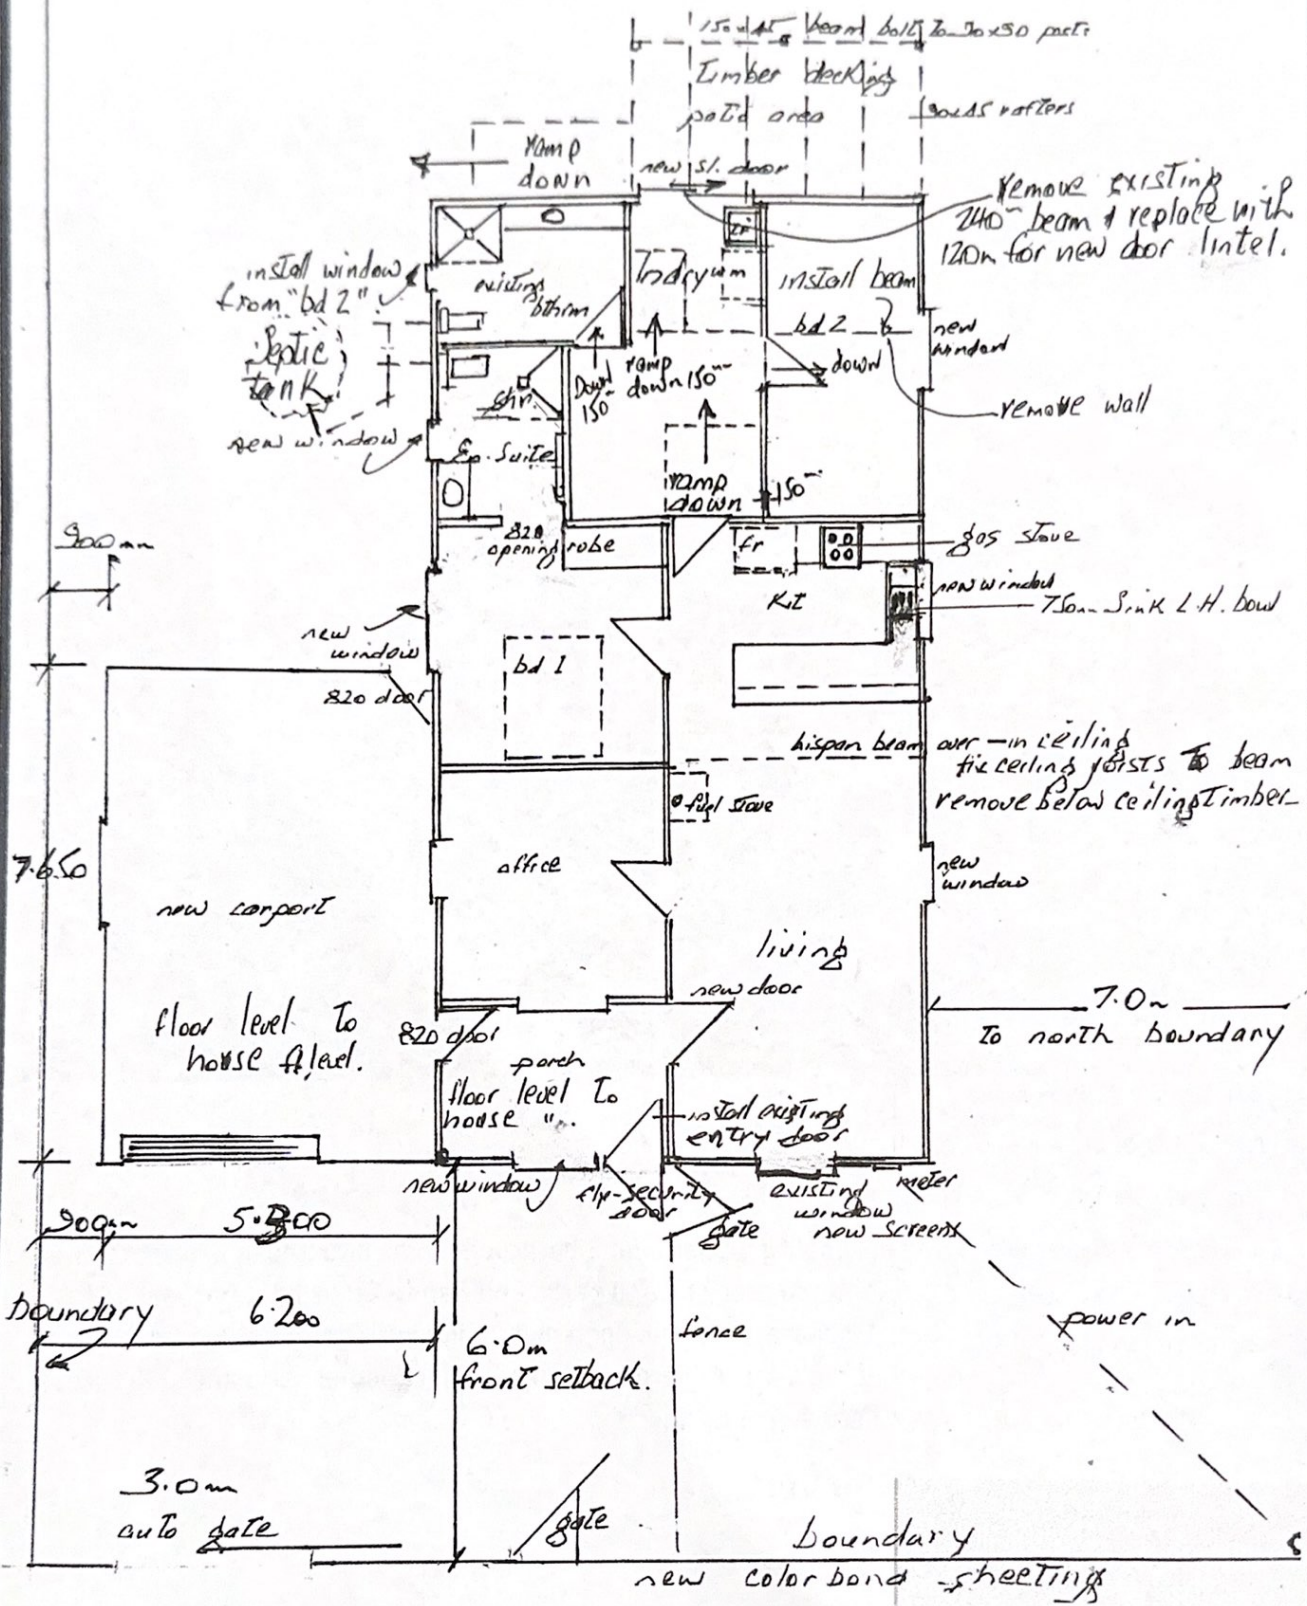 150x45 beam bolt To 90x90 posts
Timber decking
patio area
90x45 rafters
ramp
down
new sl. door
remove existing
240 beam & replace with
120m for new door lintel.
install window
from "bd 2"
existing
bthrm
lndry wm
tr
install beam
bd 2
new
window
Septic
tank
Down
150
ramp
down 150
down
remove wall
shr.
new window
En-Suite
ramp
down
150
900mm
820
opening
robe
fr
gas stove
Kt
new window
750 Sink L.H. bowl
new
window
bd 1
820 door
hispan beam over – in ceiling
fix ceiling joists To beam
remove below ceiling Timber
fuel stove
7.650
office
new
window
new carport
living
new door
7.0m
To north boundary
floor level To
house fl.level.
820 door
porch
floor level To
house ".
install existing
entry door
new window
fly-security
door
existing
window
new screens
meter
gate
900mm
boundary
6.200
6.0m
front setback.
fence
power in
3.0m
auto gate
gate
boundary
new colorbond sheeting